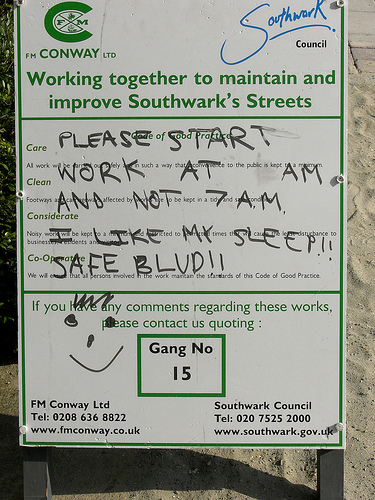 FM
FM CONWAY LTD
Southwark
Council
Working together to maintain and
improve Southwark's Streets
Code of Good Practice
Care
PLEASE START
All work will be carried out safely and in such a way that inconvenience to the public is kept to a minimum.
WORK AT AM
Clean
Footways and carriageways affected by work are to be kept in a tidy and safe condition.
AND NOT 7 A.M.
Considerate
Noisy work will be kept to a minimum and restricted to times cause the least disturbance to
businesses, residents and
I LIKE MY SLEEP!!
Co-Operative
SAFE BLUD!!
We will ensure that all persons involved in the work maintain the standards of this Code of Good Practice.
If you have any comments regarding these works,
please contact us quoting :
Gang No
15
FM Conway Ltd
Tel: 0208 636 8822
www.fmconway.co.uk
Southwark Council
Tel: 020 7525 2000
www.southwark.gov.uk